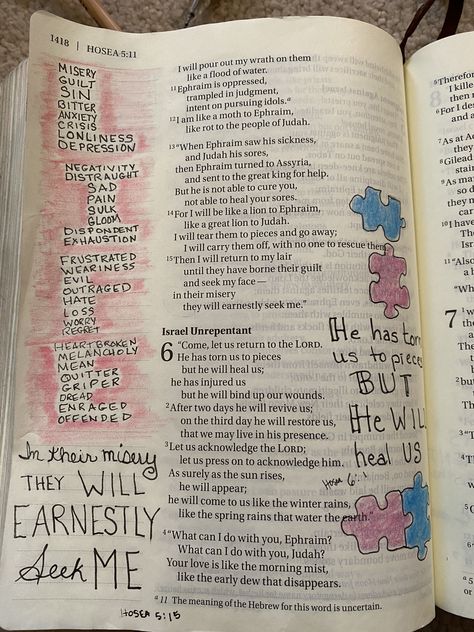 1418 | HOSEA 5:11
MISERY
GUILT
SIN
BITTER
ANXIETY
CRISIS
LONLINESS
DEPRESSION
NEGATIVITY
DISTRAUGHT
SAD
PAIN
SULK
GLOOM
DISPONDENT
EXHAUSTION
FRUSTRATED
WEARINESS
EVIL
OUTRAGED
HATE
LOSS
WORRY
REGRET
HEARTBROKEN
MELANCHOLY
MEAN
QUITTER
GRIPER
DREAD
ENRAGED
OFFENDED
In their misery
THEY WILL
EARNESTLY
Seek ME
HOSEA 5:15
I will pour out my wrath on them
like a flood of water.
11 Ephraim is oppressed,
trampled in judgment,
intent on pursuing idols.a
12 I am like a moth to Ephraim,
like rot to the people of Judah.
13 “When Ephraim saw his sickness,
and Judah his sores,
then Ephraim turned to Assyria,
and sent to the great king for help.
But he is not able to cure you,
not able to heal your sores.
14 For I will be like a lion to Ephraim,
like a great lion to Judah.
I will tear them to pieces and go away;
I will carry them off, with no one to rescue them.
15 Then I will return to my lair
until they have borne their guilt
and seek my face—
in their misery
they will earnestly seek me.”
Israel Unrepentant
6 “Come, let us return to the LORD.
He has torn us to pieces
but he will heal us;
he has injured us
but he will bind up our wounds.
2 After two days he will revive us;
on the third day he will restore us,
that we may live in his presence.
3 Let us acknowledge the LORD;
let us press on to acknowledge him.
As surely as the sun rises,
he will appear;
he will come to us like the winter rains,
like the spring rains that water the earth.”
4 “What can I do with you, Ephraim?
What can I do with you, Judah?
Your love is like the morning mist,
like the early dew that disappears.
a 11 The meaning of the Hebrew for this word is uncertain.
He has torn
us to pieces
BUT
He WILL
heal US
Hosea 6:1
7